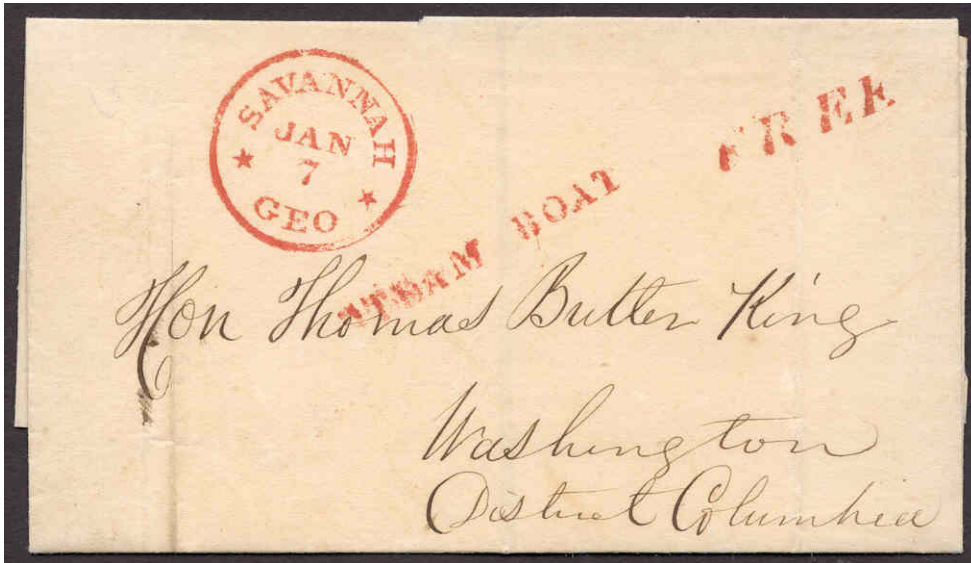 SAVANNAH
JAN
7
GEO
STEAM BOAT
FREE
Hon Thomas Butler King
Washington
District Columbia